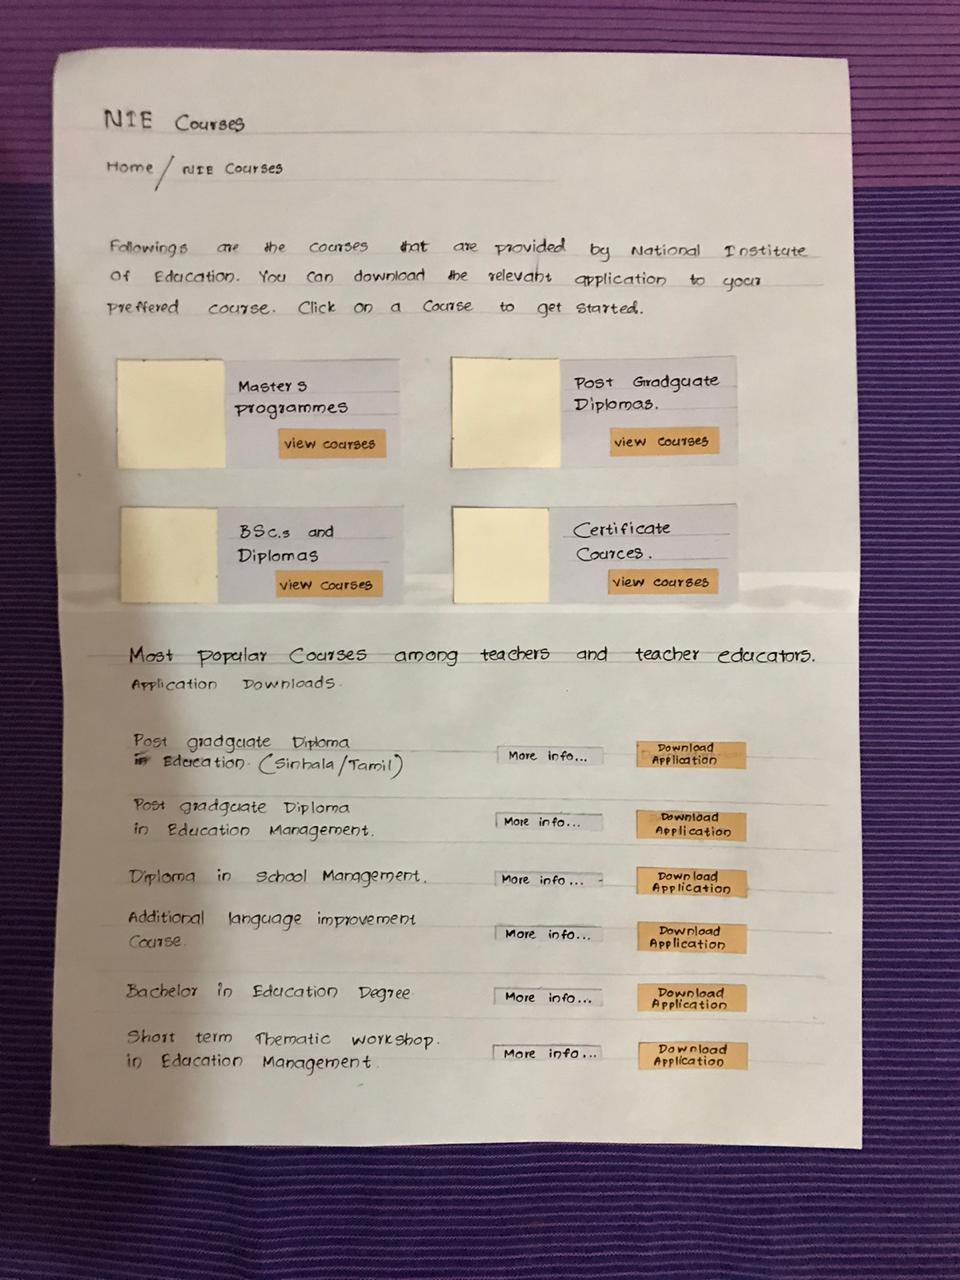 NIE Courses
Home / NIE Courses
Followings are the courses that are provided by National Institute
of Education. You can download the relevant application to your
preffered course. Click on a Course to get started.
Masters
programmes
view courses
Post Gradguate
Diplomas.
view courses
BSc.s and
Diplomas
view courses
Certificate
Cources.
view courses
Most popular Courses among teachers and teacher educators.
Application Downloads.
Post gradguate Diploma
in Education. (Sinhala/Tamil)
More info...
Download
Application
Post gradguate Diploma
in Education Management.
More info...
Download
Application
Diploma in School Management.
More info...
Download
Application
Additional language improvement
Course.
More info...
Download
Application
Bachelor in Education Degree
More info...
Download
Application
Short term Thematic workshop.
in Education Management.
More info...
Download
Application